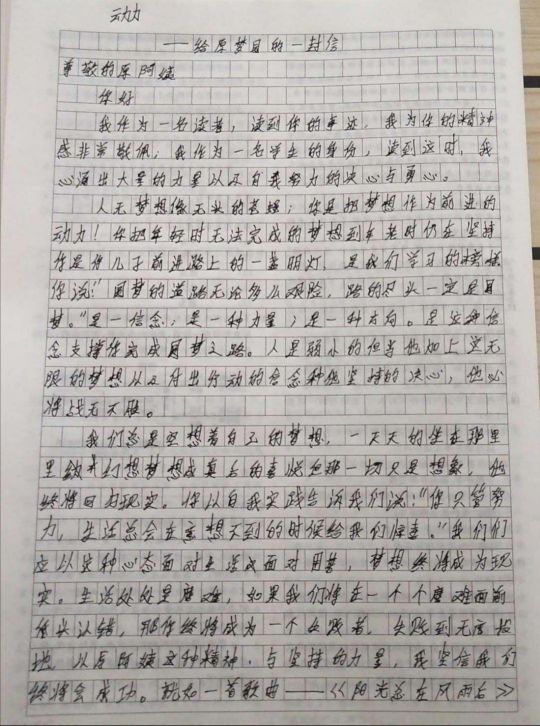 动力
——给原梦园的一封信
尊敬的原阿姨
你好
我作为一名读者，读到你的事迹，我为你的精神
感非常敬佩；我作为一名学生的身份，读到这时，我
心涌出大量的力量以及自我努力的决心与勇心。
人无梦想像无头的苍蝇；你是把梦想作为前进的
动力！你把年轻时无法完成的梦想到年老时仍在坚持
你是你儿子前进路上的一盏明灯，是我们学习的榜样
你说：“圆梦的道路无论多么艰险，路的尽头一定是圆
梦。”是一信念；是一种力量；是一种方向。是这种信
念支撑你完成圆梦之路。人是弱小的但当他加上空无
限的梦想以及付出行动的信念种他坚持的决心，他必
将战无不胜。
我们总是空想着自己的梦想，一天天的坐在那里
里幻想梦想成真后的喜悦但那一切只是想象，他
终将回归现实。你以自我实践告诉我们说：“你只管努
力，生活总会在意想不到的时候给我们惊喜。”我们们
应以这种心态面对生活面对困苦，梦想终将成为现
实。生活处处是磨难，如果我们将在一个个磨难面前
低头认错，那你终将成为一个失败者，失败到无言投
地，以原阿姨这种精神，与坚持的力量，我坚信我们
终将会成功。就如一首歌曲——《阳光总在风雨后》